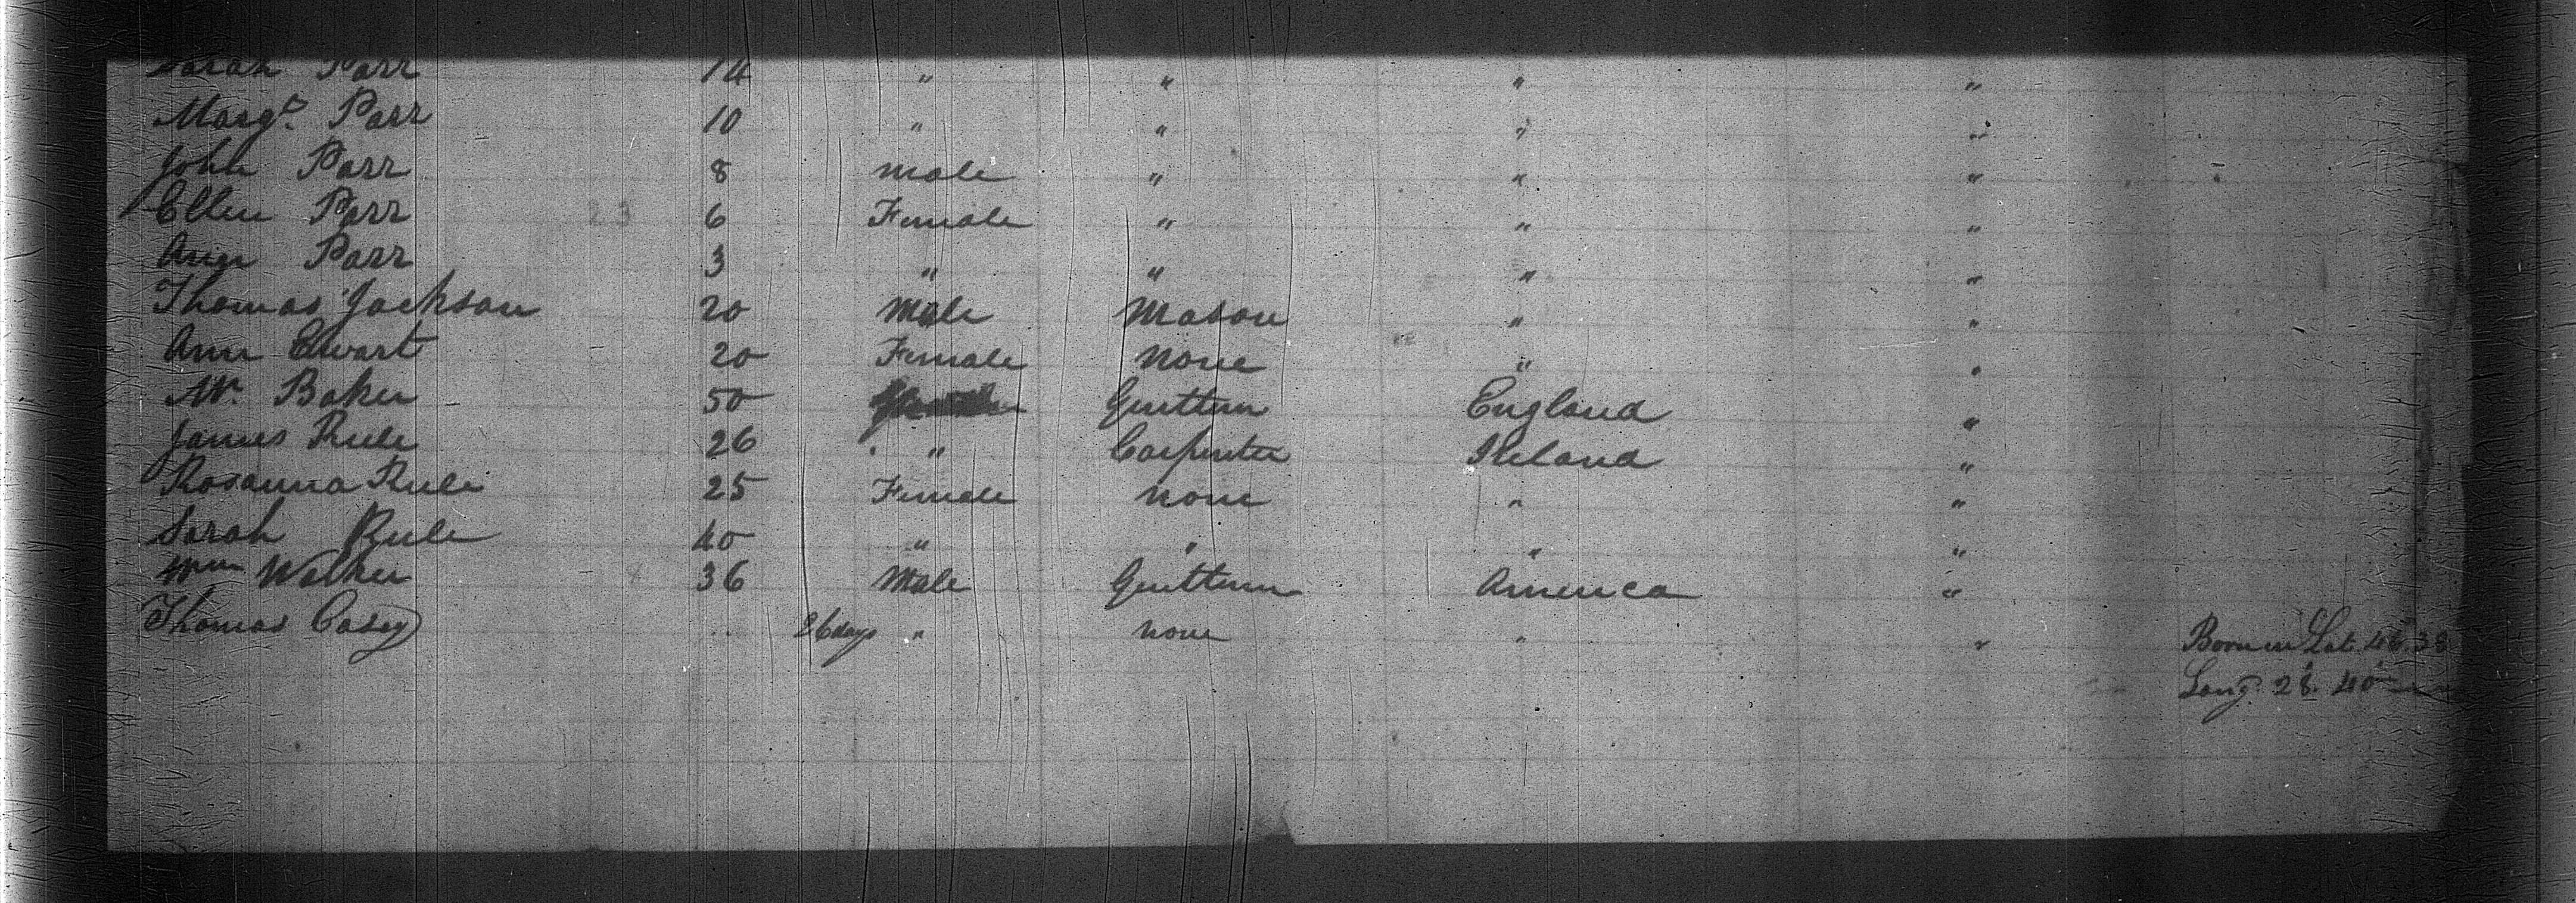 Sarah Parr 14 " " " "
Margt. Parr 10 " " " "
John Parr 8 male " " "
Ellen Parr 23 6 Female " " "
Ann Parr 3 " " " "
Thomas Jackson 20 Male Mason " "
Ann Ewart 20 Female None " "
Mr. Baker 50 Gentlem England "
James Rule 26 " Carpenter Ireland "
Rosanna Rule 25 Female None " "
Sarah Rule 40 " " " "
Wm Walker 36 Male Gentlem America "
Thomas Casey .. 26 days " none " " Born in Lat. 46.38
Long. 28. 40